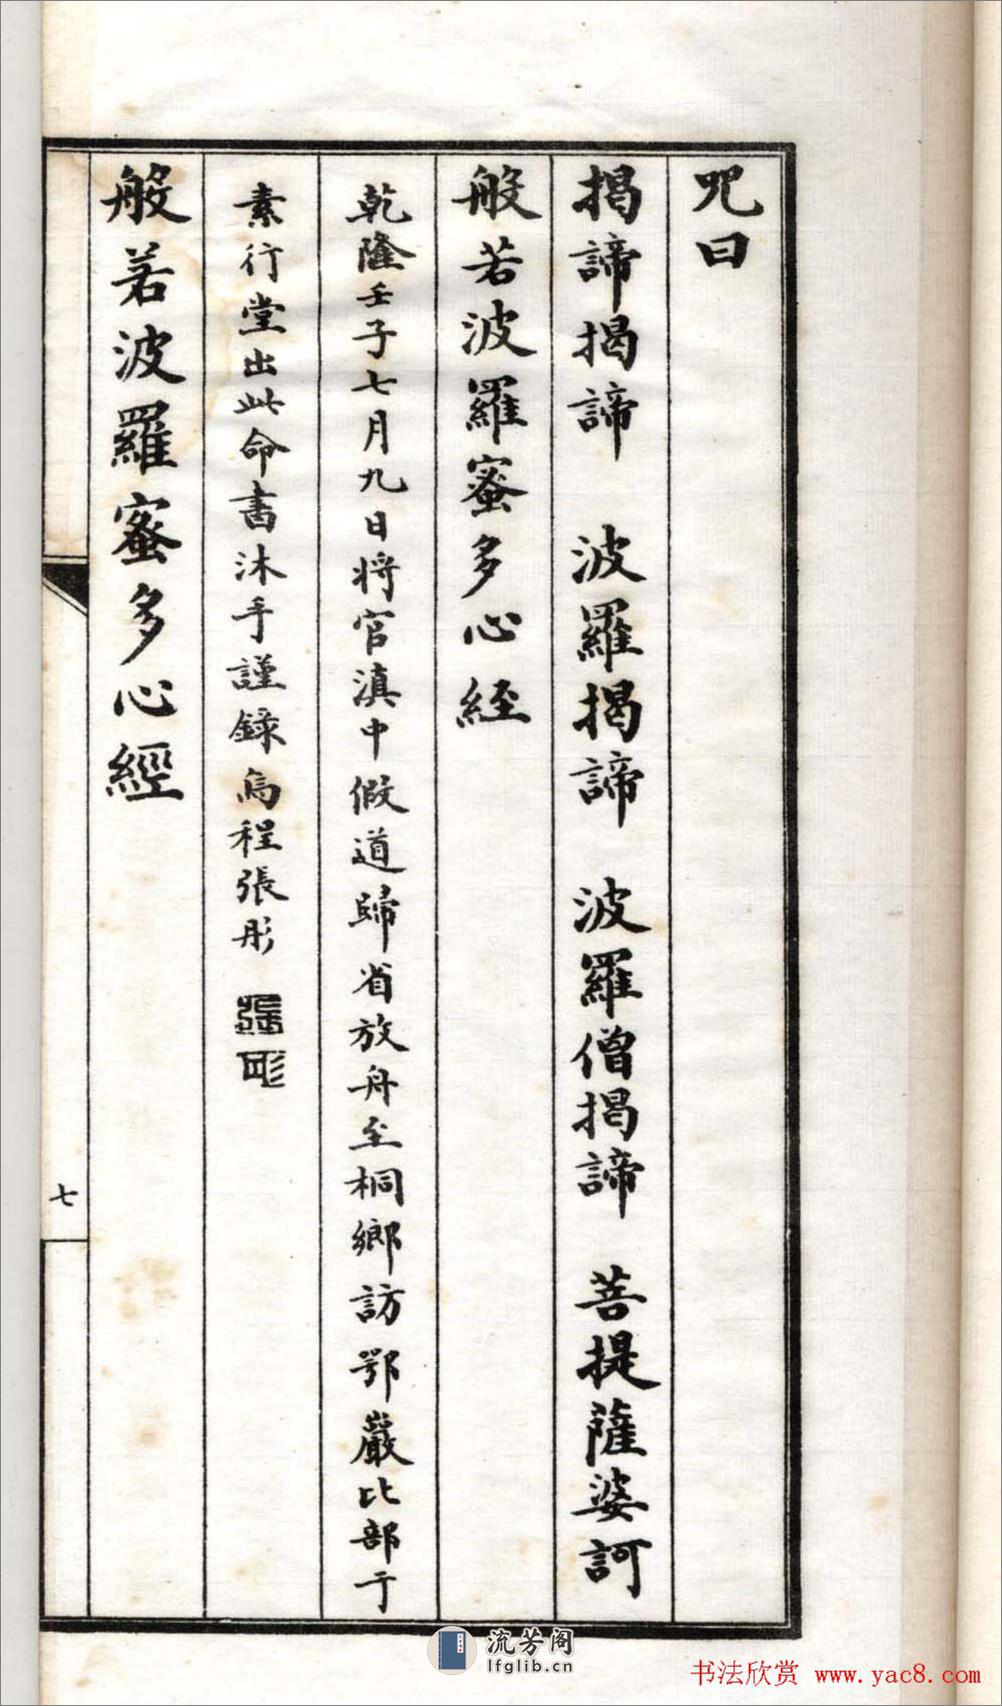 咒曰
揭諦揭諦 波羅揭諦 波羅僧揭諦 菩提薩婆訶
般若波羅蜜多心経
乾隆壬子七月九日将官滇中假道歸省放舟至桐鄉訪鄂巖比部于
素行堂出此命書沐手謹錄烏程張彤
張彤
般若波羅蜜多心經
七
流芳阁
lfglib.cn
书法欣赏 www.yac8.com